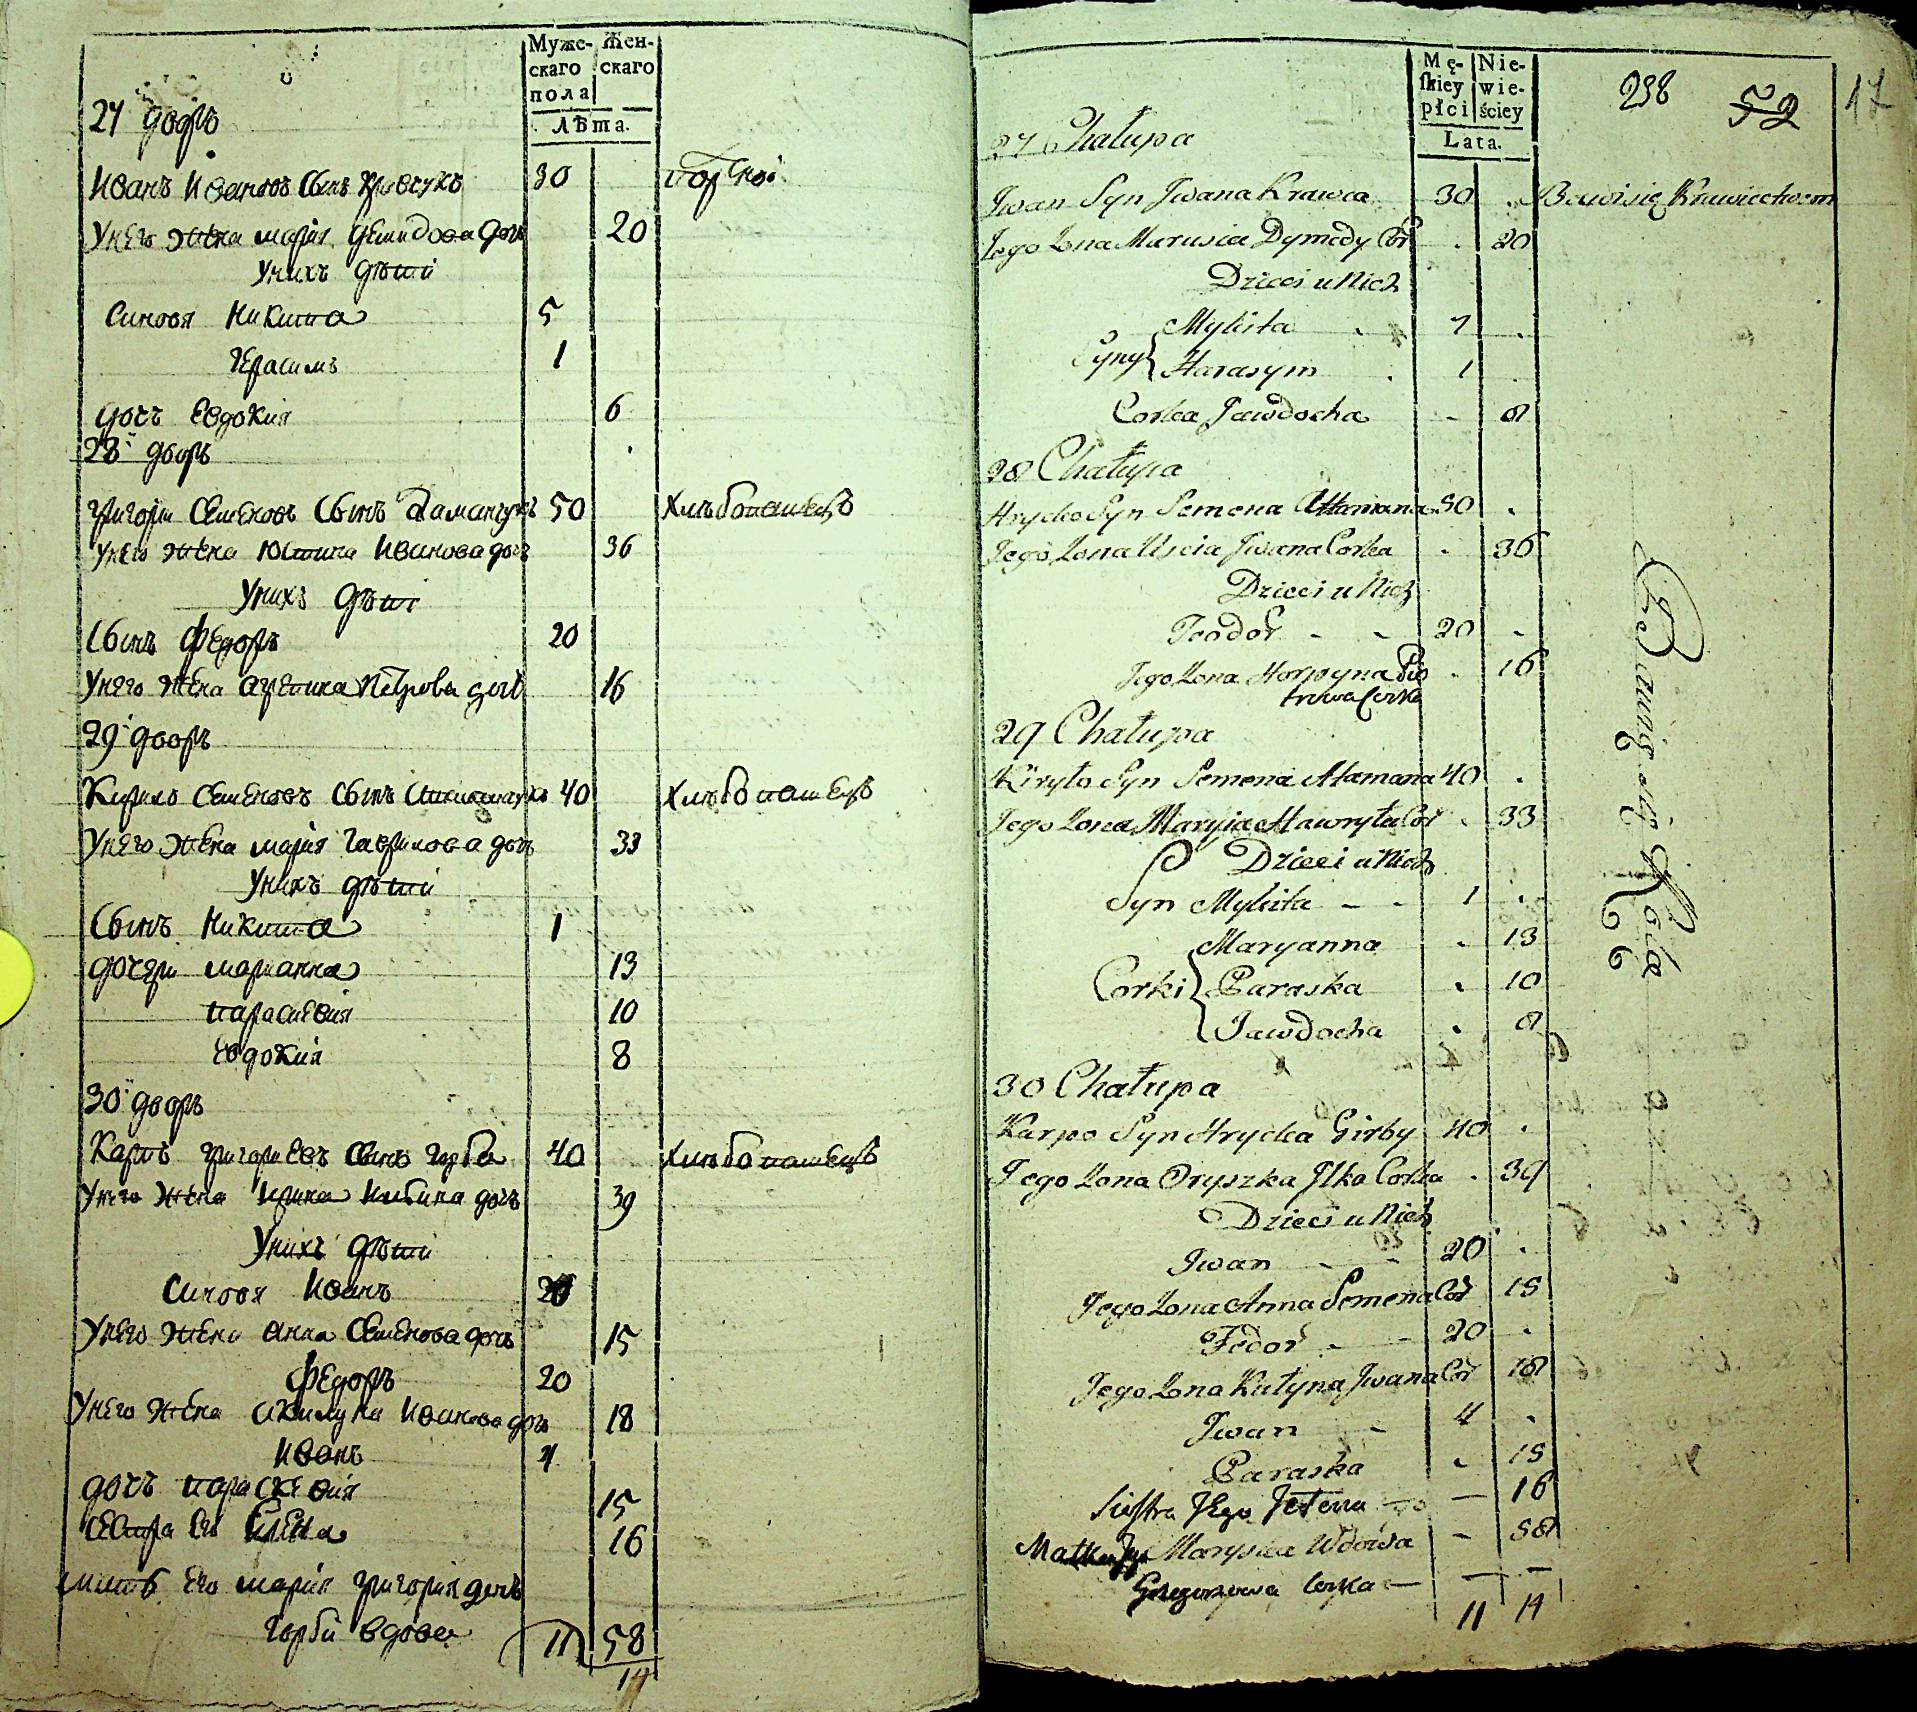 Муже-
скаго
пола
Жен-
скаго
Лѣта.
27 дворъ
Иванъ Ивановъ Сынъ Кравчукъ 30
Унего жена мария демидова дочь 20
Унихъ дѣти
Синовя Никита 5
Герасимъ 1
дочь Евдокия 6
28 дворъ
григори Семеновъ Сынъ 50 Хлѣбопашецъ
унего жена Юстина Иванова дочь 36
Унихъ дѣти
Сынъ Федоръ 20
Унего жена Петрова дочь 16
29 дворъ
Кирило Семеновъ Сынъ 40 Хлѣбопашецъ
Унего жена мария гаврилова дочь 33
Унихъ дѣти
Сынъ Никита 1
дочери марианна 13
параскевия 10
Евдокия 8
30 дворъ
Карпъ григориевъ Сынъ горба 40 Хлѣбопашецъ
Унего жена дочь 39
Унихъ дѣти
Синовя Иванъ 20
Унего жена анна Семенова дочь 15
Федоръ 20
Унего жена Иванова дочь 18
Иванъ 4
дочь параскевия 15
сестра его Елена 16
его мария григория дочь
горби вдова 58
11
14
Mę-
skiey
płci
Nie-
wie-
ściey
Lata.
238 52 17
27 Chałupa
Jwan Syn Jwana Krawca 30 . Bawi się Krawiectwem
Jego Zona Marusia Dymedy Cor . 20
Dzieci u Nich
Syny Mykita 7 .
Harasym 1 .
Corka Jawdocha - 8
28 Chałupa
Hrycko Syn Semena Attamana 50 .
Jego Zona Uscia Jwana Corka . 36
Dzieci u Nich
Teodor - - 20 -
Jego Zona Horpyna Pio . 16
trowa Corka
29 Chałupa
Kiryło Syn Semena Atamana 40 .
Jego Zona Maryia Hawryła Cor . 33
Dzieci u Nich
Syn Mykita - - 1 .
Corki Maryanna . 13
Paraska . 10
Jawdocha . 8
30 Chałupa
Karpo Syn Hrycka Girby 40 .
Jego Zona Oryszka Jlka Corka . 39
Dzieci u Nich
Jwan - - 20 .
Jego Zona Anna Semena Cor 15
Fedor - - 20 .
Jego Zona Katyna Jwana Cor 18
Jwan - 4 .
Paraska . 15
Siostra Jego Jelena - 16
Matka Jego Marysia Wdowa - 58
Gregorowa Corka - - -
11 14
Bawią się Rolą